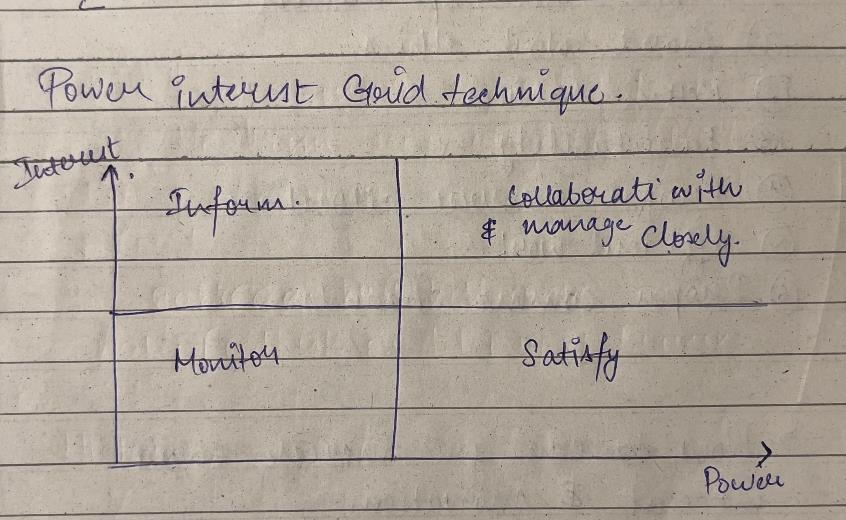 Power interest Grid technique.
Interest
Inform.
Collaborati with
& manage closely.
Monitor
Satisfy
Power